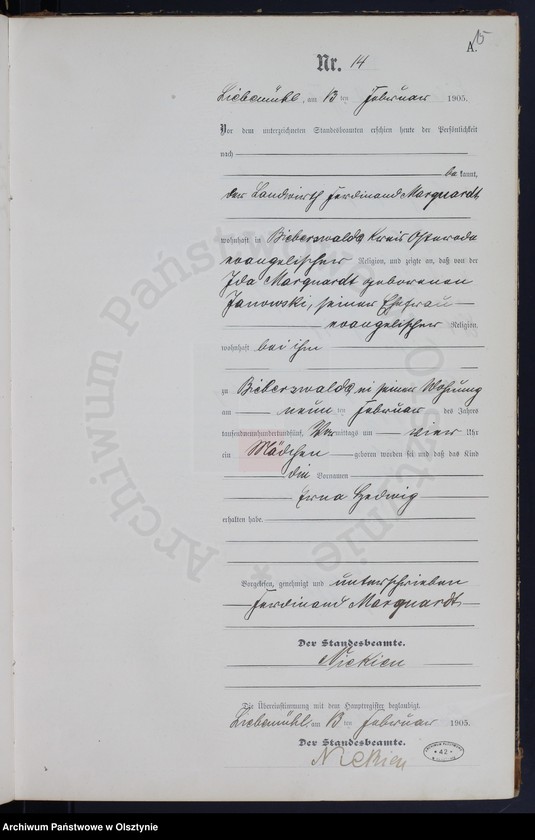 15
A.
Nr. 14
Liebemühl, am 13 ten Februar 1905.
Vor dem unterzeichneten Standesbeamten erschien heute der Persönlichkeit
nach
be kannt,
der Landwirth Ferdinand Marquardt
wohnhaft in Bieberswalde Kreis Osterode
evangelischer Religion, und zeigte an, daß von der
Ida Marquardt geborenen
Janowski, seiner Ehefrau
evangelischer Religion,
wohnhaft bei ihm
zu Bieberswalde in seiner Wohnung
am neun ten Februar des Jahres
tausendneunhundertundfünf, Vormittags um vier Uhr
ein Mädchen geboren worden sei und daß das Kind
die Vornamen
Erna Hedwig
erhalten habe.
Vorgelesen, genehmigt und unterschrieben
Ferdinand Marquardt
Der Standesbeamte.
Die Übereinstimmung mit dem Hauptregister beglaubigt.
Liebemühl, am 13 ten Februar 1905.
Der Standesbeamte.
* 42 *
Archiwum Państwowe w Olsztynie
Archiwum Państwowe w Olsztynie